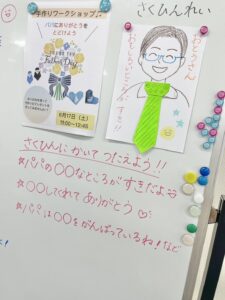 さくひんれい
手作りワークショップ♪
パパにありがとうを
とどけよう
6月17日（土）
11:00～12:45
おとうさん
さくひんにかいてつたえよう!!
☆パパの○○なところがすきだよ
☆○○してくれてありがとう
☆パパは○○をがんばっているね！など